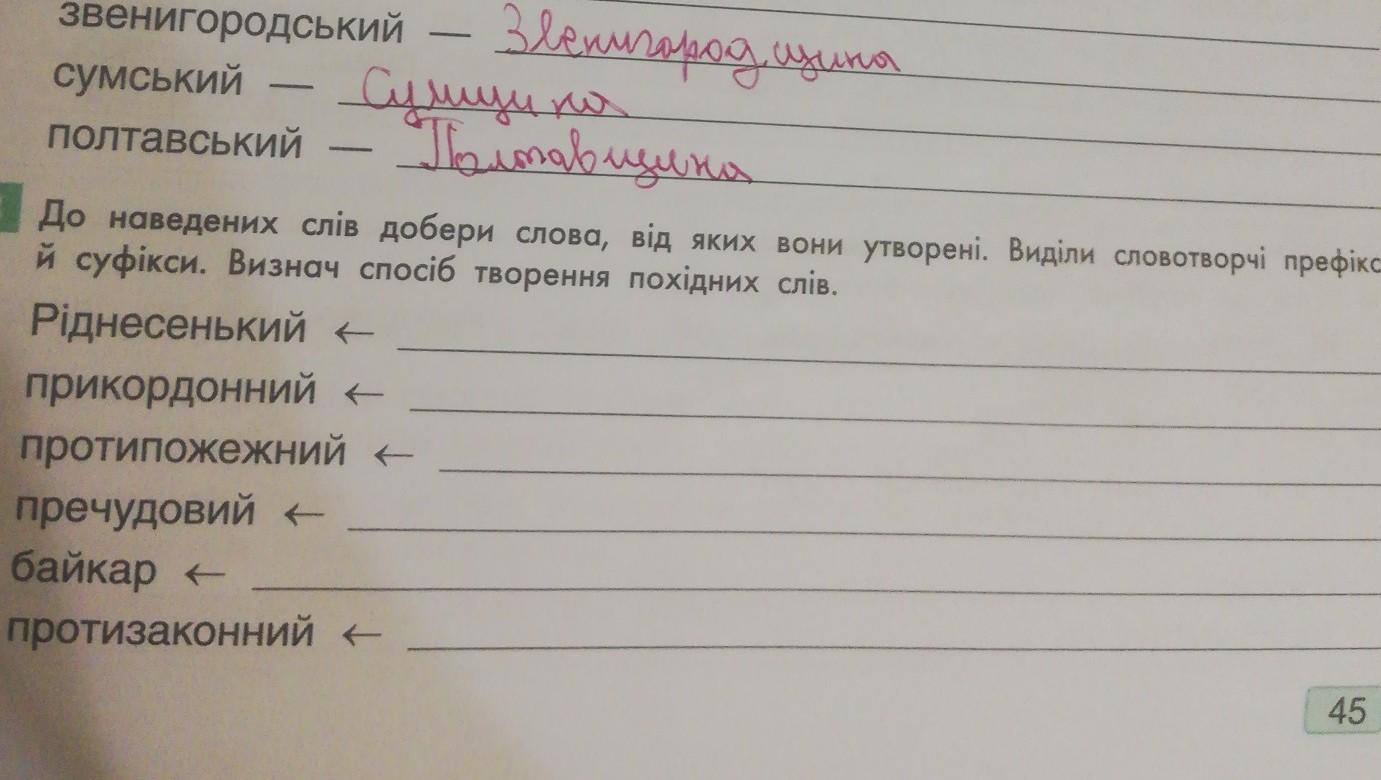 звенигородський — Звенигородщина
сумський — Сумщина
полтавський — Полтавщина
До наведених слів добери слова, від яких вони утворені. Виділи словотворчі префікс
й суфікси. Визнач спосіб творення похідних слів.
Ріднесенький ←
прикордонний ←
протипожежний ←
пречудовий ←
байкар ←
протизаконний ←
45